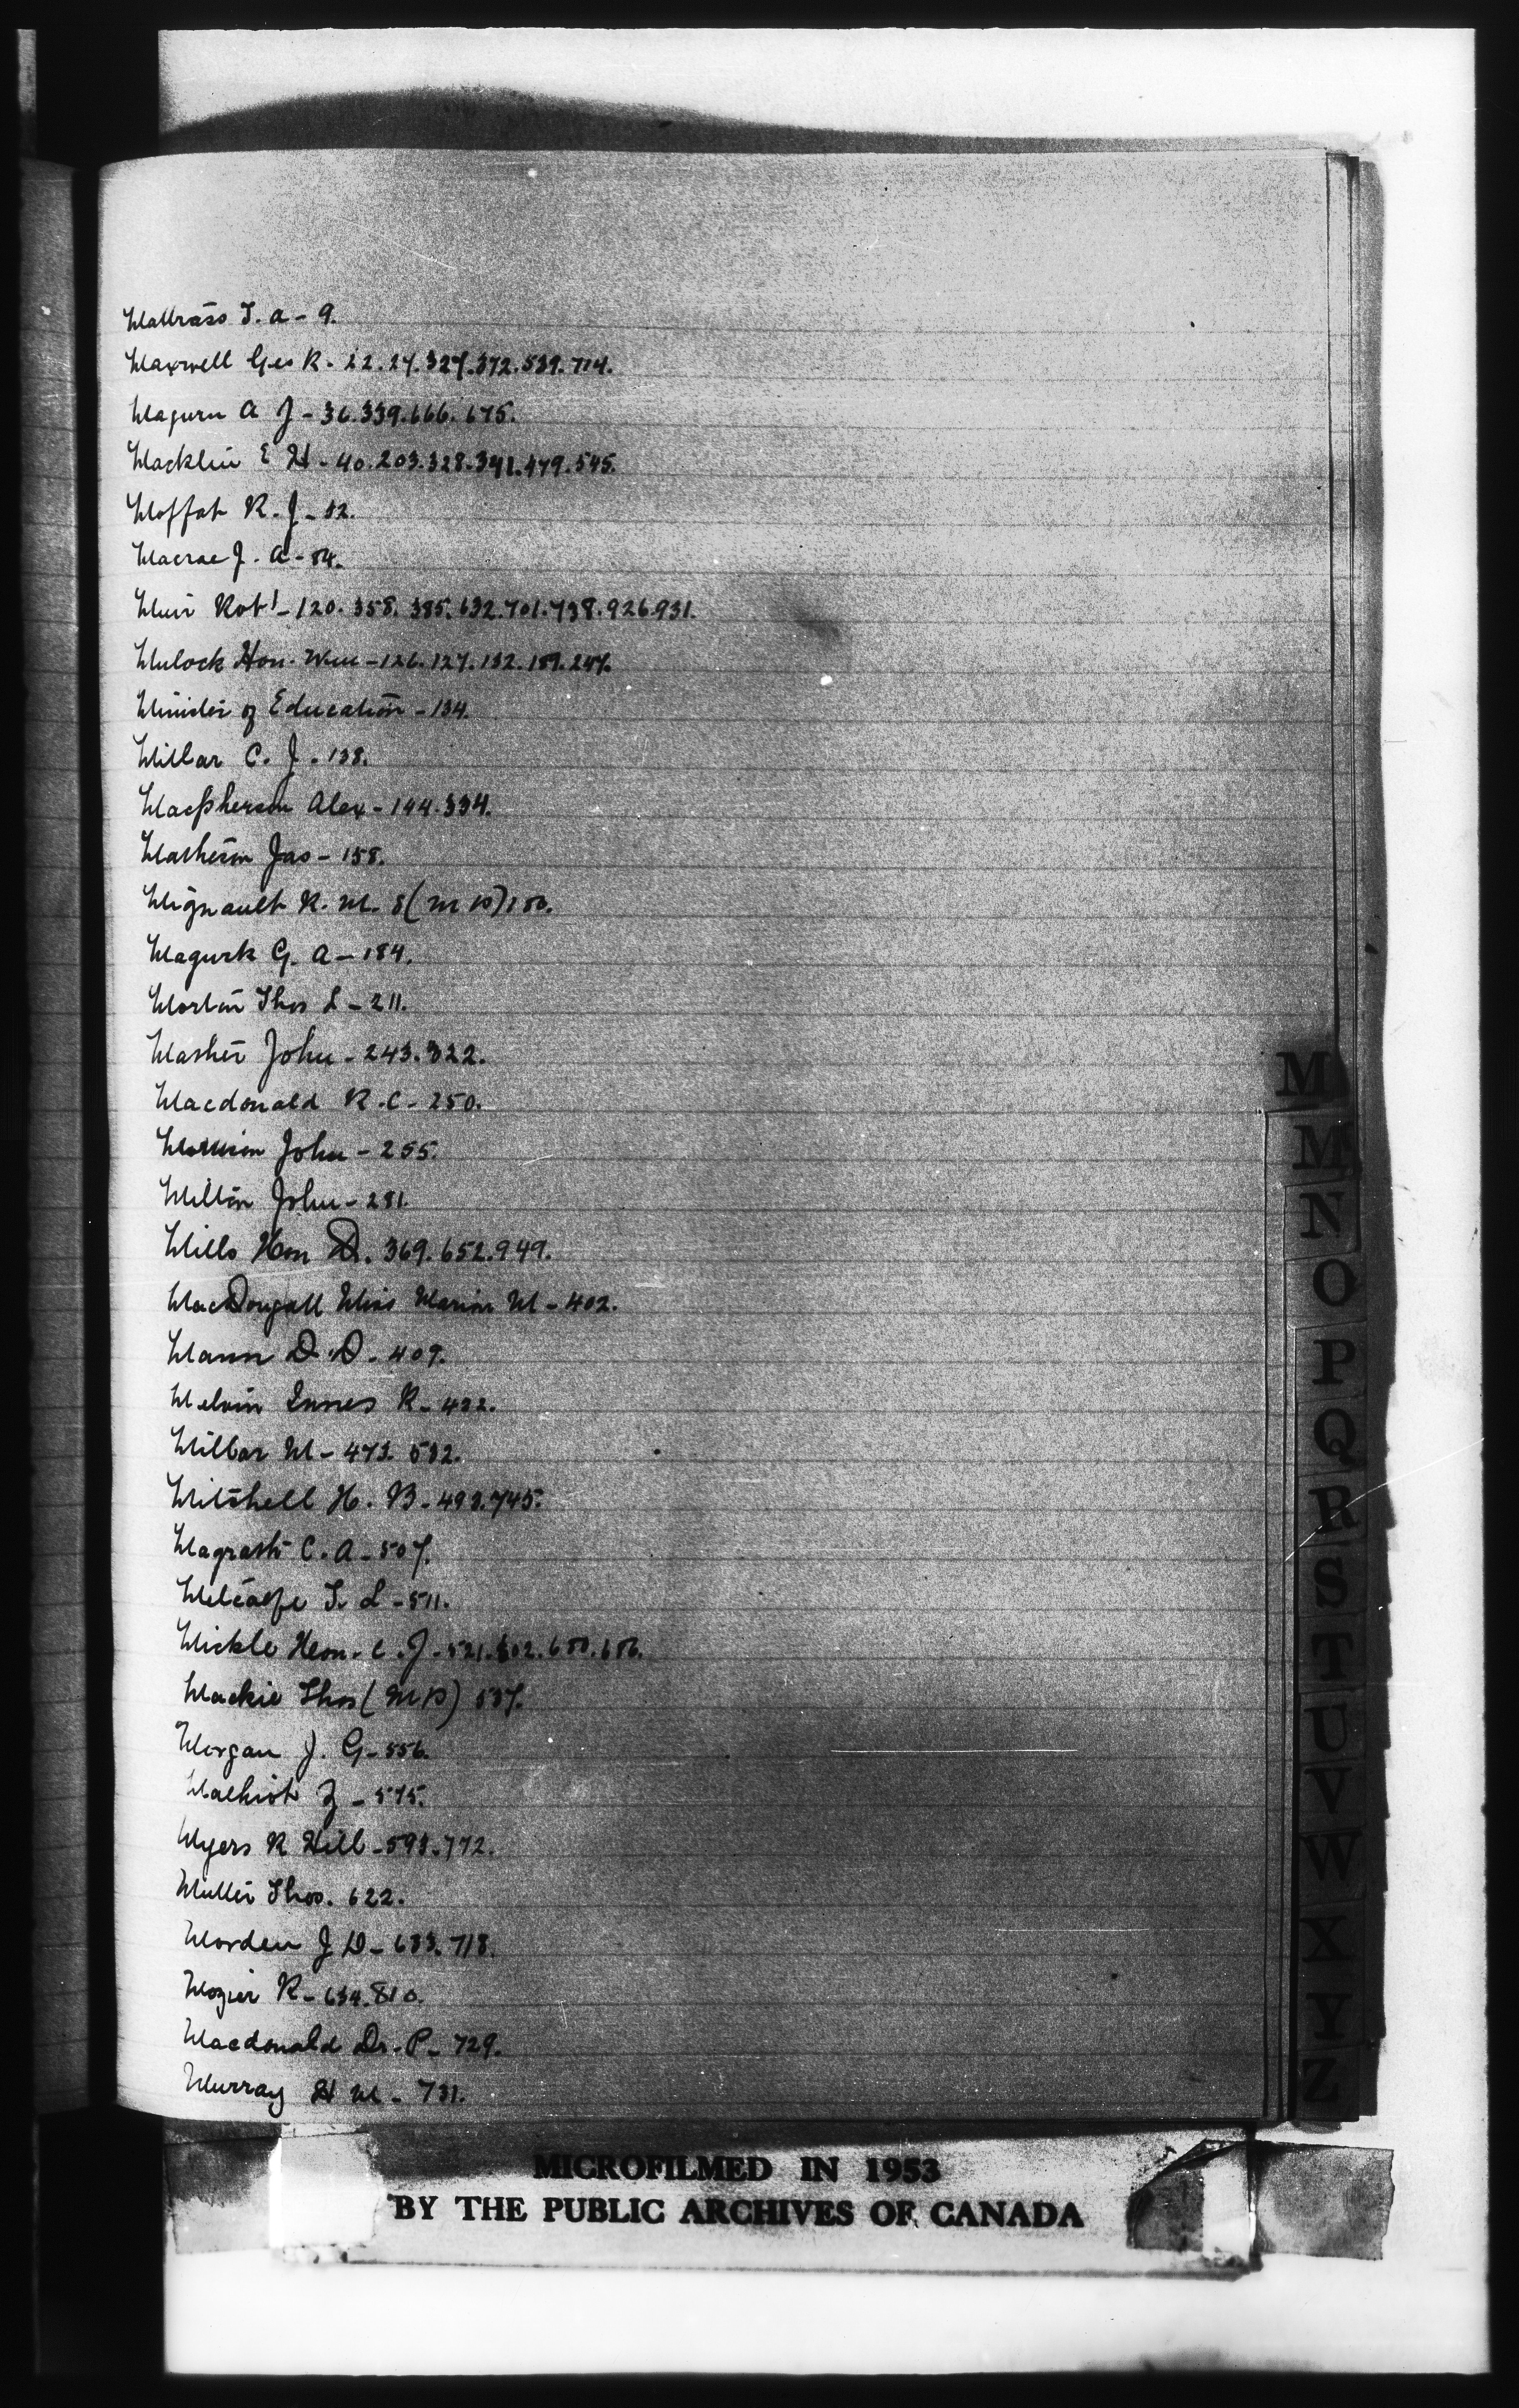 Mallrass T. A - 9.
Maxwell Geo R. 22. 27. 327. 372. 539. 714.
Maguru A J - 36. 339. 666. 675.
Macklin E H - 40. 203. 328. 341. 479. 545.
Moffat R. J - 82.
Macrae J. A - 84.
Muir Robt - 120. 358. 385. 632. 701. 738. 926. 931.
Mulock Hon. Wm - 126. 127. 132. 159. 247.
Minister of Education - 134.
Millar C. J. 138.
Macpherson Alex - 144. 334.
Matheson Jas - 158.
Mignault R. M. S (M P) 180.
Magurk G. A - 184.
Morton Thos L - 211.
Mather John - 243. 322.
Macdonald R. C - 250.
Morrison John - 255.
Milton John - 281.
Mills Hon D. 369. 652. 949.
MacDougall Miss Marion M - 402.
Mann D. D. 409.
Melvin Innes R - 422.
Millar M - 473. 532.
Mitchell H. B. 493. 745.
Magrath C. A - 507.
Metcalfe T. L - 511.
Mickle Hon. C. J. 521. 602. 680. 686.
Mackie Thos (M P) 537.
Morgan J. G - 556.
Malhiot Z - 575.
Myers R Hill - 593. 772.
Muller Thos. 622.
Morden J D - 633. 718.
Mozier R - 634. 810.
Macdonald Dr. P - 729.
Murray H M - 731.
M
M
N
O
P
Q
R
S
T
U
V
W
X
Y
Z
MICROFILMED IN 1953
BY THE PUBLIC ARCHIVES OF CANADA